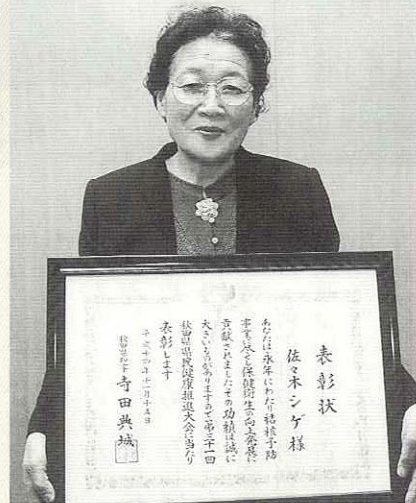 表彰状
佐々木シゲ様
あなたは永年にわたり結核予防
事業はじめ保健衛生の向上発展に
貢献されましたその功績は誠に
大きいものがありますので第三十一回
秋田県県民健康推進大会に当たり
表彰します
平成十四年十一月十五日
秋田県知事 寺田典城